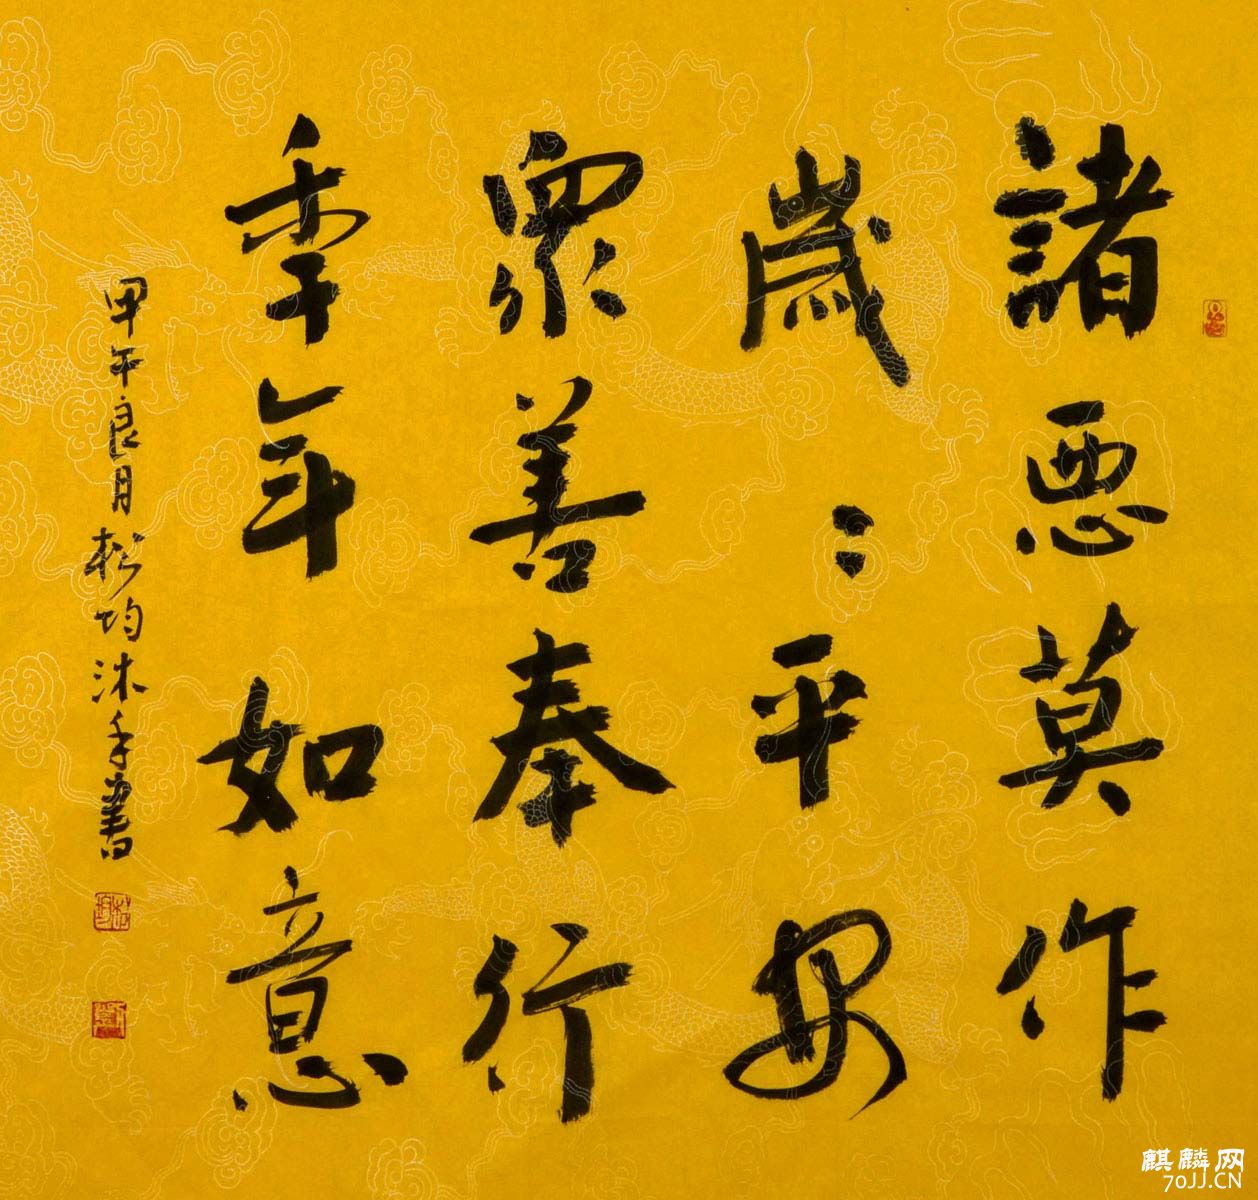 諸惡莫作
歲〻平安
眾善奉行
季年如意
甲午良月松均沐手書
麒麟网
70JJ.CN